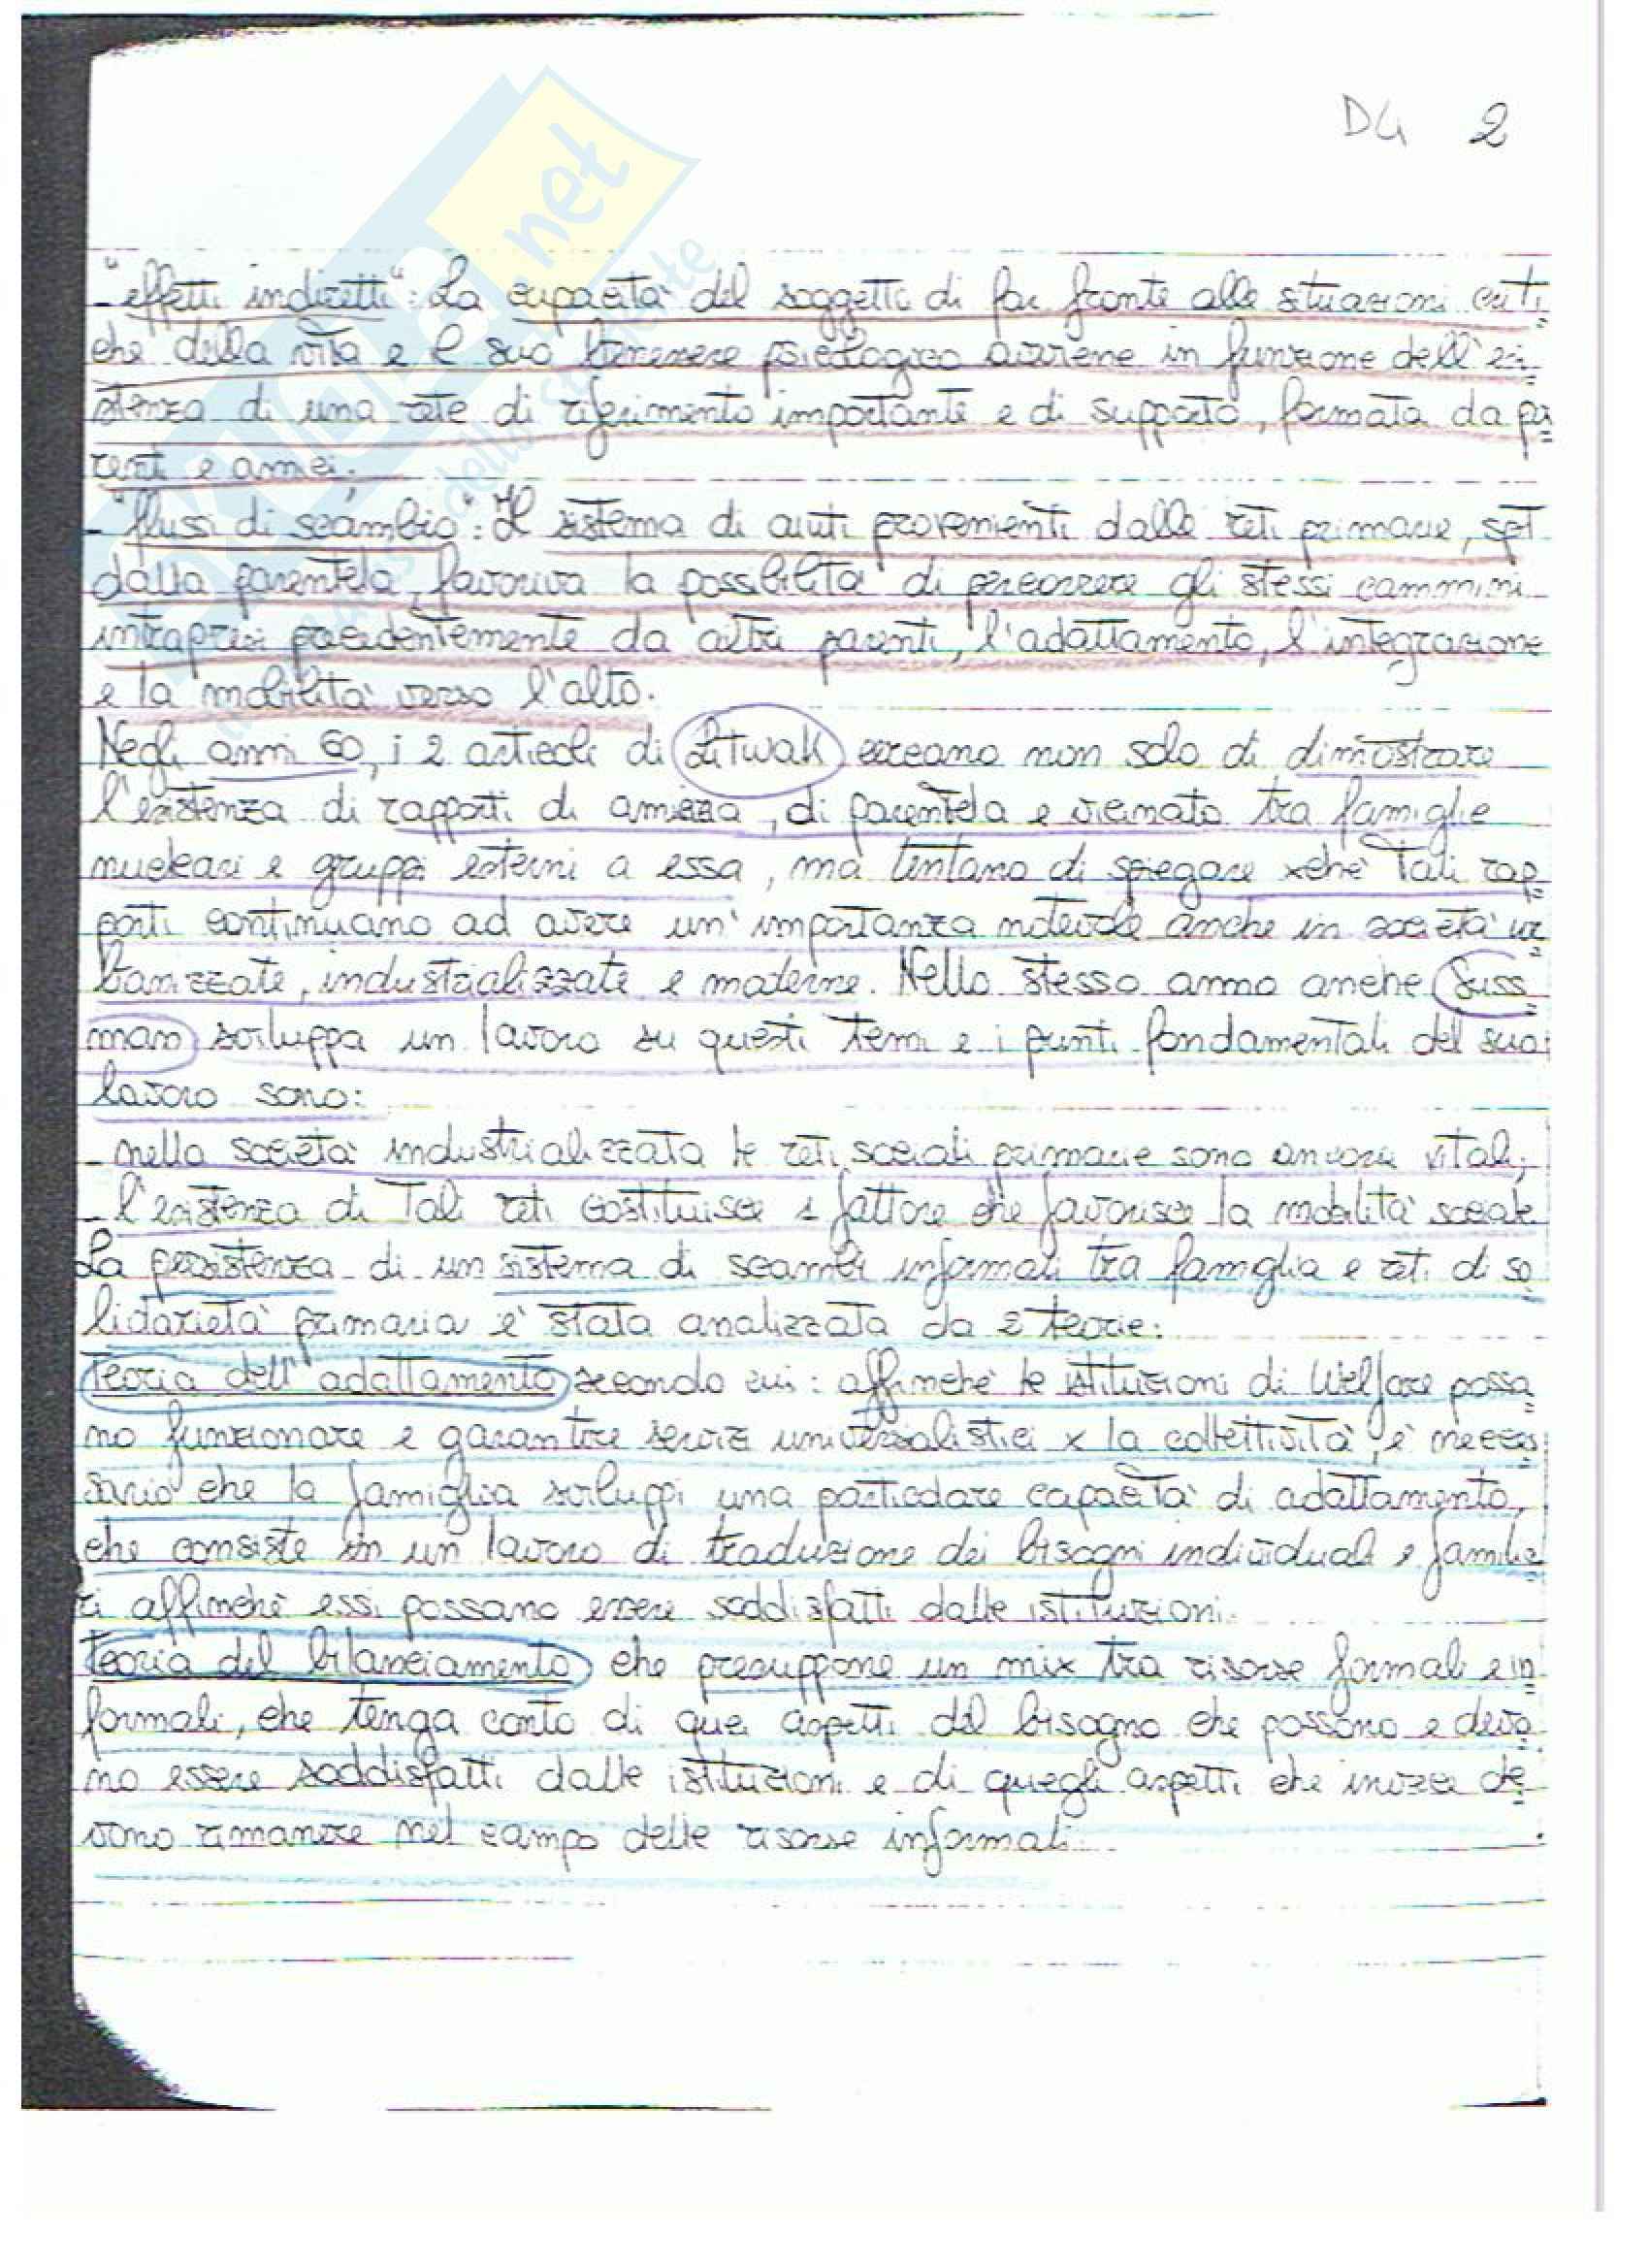 DG 2
- "effetti indiretti": La capacità del soggetti di far fronte alle situazioni criti
che della vita e il suo benessere psicologico avviene in funzione dell'esi
stenza di una rete di riferimento importante e di supporto, formata da pa
renti e amici;
- "flussi di scambio": Il sistema di aiuti provenienti dalle reti primarie, spt
dalla parentela, favoriva la possibilità di percorrere gli stessi cammini
intrapresi precedentemente da altri parenti, l'adattamento, l'integrazione
e la mobilità verso l'alto.
Negli anni 60, i 2 articoli di Litwak cercano non solo di dimostrare
l'esistenza di rapporti di amicizia, di parentela e vicinato tra famiglie
nucleari e gruppi esterni a essa, ma tentano di spiegare xchè tali rap
porti continuano ad avere un'importanza notevole anche in società ur
banizzate, industrializzate e moderne. Nello stesso anno anche Suss
man sviluppa un lavoro su questi temi e i punti fondamentali del suo
lavoro sono:
- nella società industrializzata le reti sociali primarie sono ancora vitali;
- l'esistenza di tali reti costituisce 1 fattore che favorisce la mobilità sociale.
La persistenza di un sistema di scambi informali tra famiglia e reti di so
lidarietà primaria è stata analizzata da 2 teorie:
Teoria dell'adattamento secondo cui: affinchè le istituzioni di Welfare possa
no funzionare e garantire servizi universalistici x la collettività, è neces
sario che la famiglia sviluppi una particolare capacità di adattamento,
che consiste in un lavoro di traduzione dei bisogni individuali e familia
ri affinchè essi possano essere soddisfatti dalle istituzioni.
Teoria del bilanciamento che presuppone un mix tra risorse formali e in
formali, che tenga conto di quei aspetti del bisogno che possono e devo
no essere soddisfatti dalle istituzioni e di quegli aspetti che invece de
vono rimanere nel campo delle risorse informali.